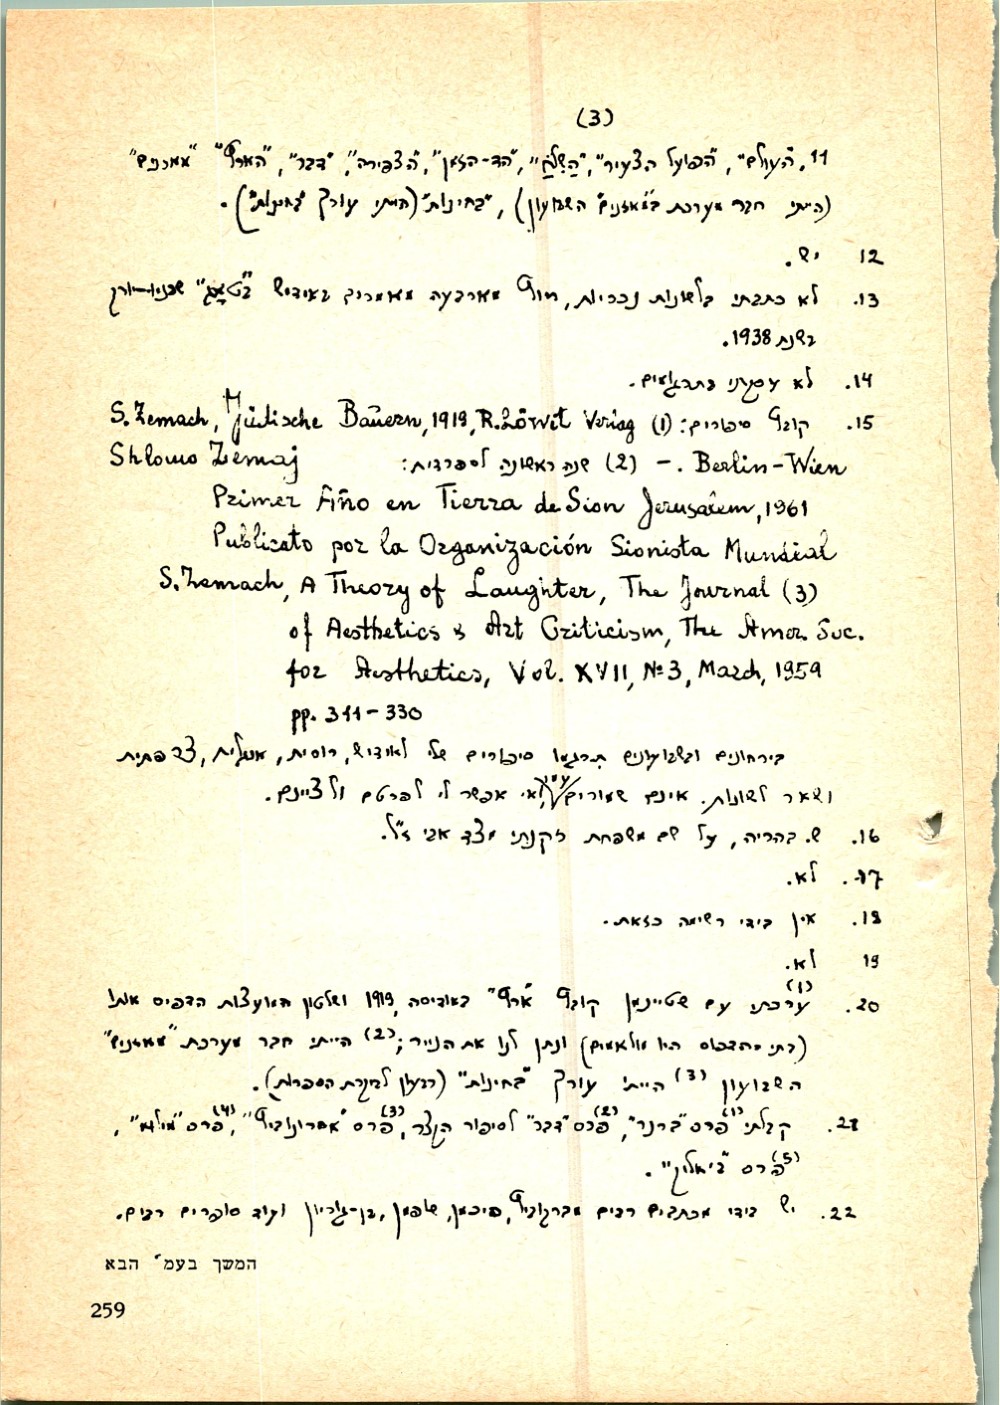 (3)
11. "העולם", "הפועל הצעיר", "הַשִּׁלֹחַ", "הד-הזמן", "הצפירה", "דבר", "הארץ" "מאזנים"
(הייתי חבר מערכת ב"מאזנים" השבועון), "בחינות" (הייתי עורך "בחינות").
12 יש.
13. לא כתבתי בלשונות נכריות, חוץ מארבעה מאמרים באידיש ב"טאָג" שבניו-יורק
בשנת 1938.
14. לא עסקתי בתרגומים.
15. קובץ סיפורים: (1) S. Zemach, Jüdische Bauern, 1919, R. Löwit Verlag
Berlin-Wien .– (2) שנה ראשונה לספרדית: Shlomo Zemaj
Primer Año en Tierra de Sion Jerusalem, 1961
Publicato por la Organización Sionista Mundial
(3) S. Zemach, A Theory of Laughter, The Journal
of Aesthetics & Art Criticism, The Amer. Soc.
for Aesthetics, Vol. XVII, № 3, March, 1959
pp. 311-330
בירחונים ובשבועונים תרגמו סיפורים שלי לאידיש, רוסית, אנגלית, צרפתית
ושאר לשונות. אינם שמורים עמי ואי אפשר לי לפרטם ולציינם.
16. ש. בהריה, על שם משפחת זקנתי מצד אבי ז"ל.
17. לא.
18. אין בידי רשימה כזאת.
19 לא.
20. (1) ערכתי עם שטיינמן קובץ "ארץ" באודיסה, 1919 ושלטון המועצות הדפיס אותו
(בתי-הדפוס היו מולאמים) ונתן לנו את הנייר; (2) הייתי חבר מערכת "מאזנים"
השבועון (3) הייתי עורך "בחינות" (רבעון לביקרת הספרות).
21. קבלתי (1) פרס "ברנר", (2) פרס "דבר" לסיפור הקצר, (3) פרס "אהרונוביץ", (4) פרס "מילוא",
(5) פרס "ביאליק".
22. יש בידי מכתבים רבים מברקוביץ, פיכמן, שופמן, בן-גוריון ועוד סופרים רבים.
המשך בעמ' הבא
259